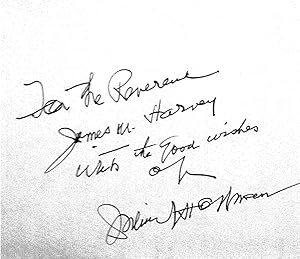 For the Reverend
James M. Harvey
with the Good wishes
of